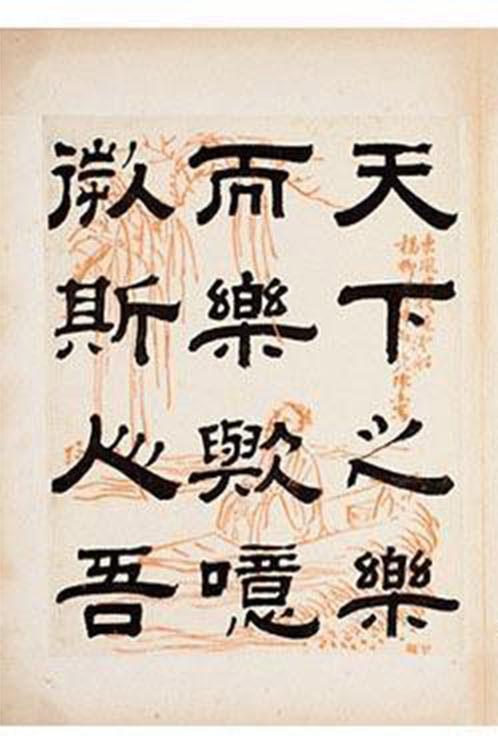 天下之樂
而樂歟噫
微斯心吾